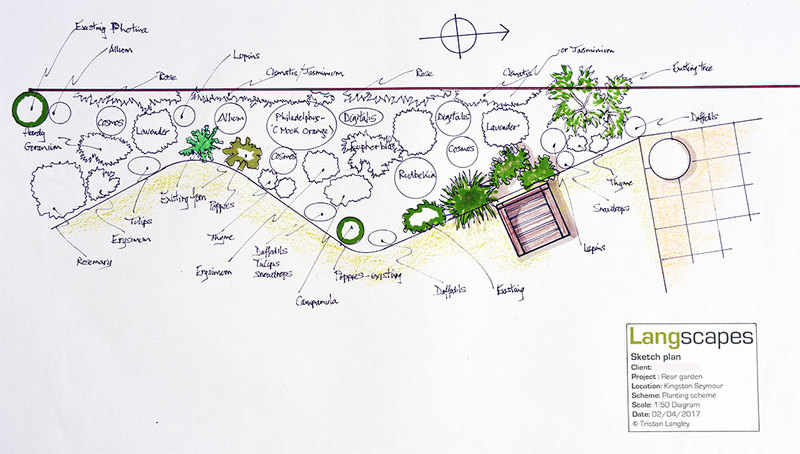 Existing Photinia
Allium
Lupins
Rose
Clematis/Jasminium
Rose
Clematis
or Jasminium
Existing tree
Hardy
Geranium
Cosmos
Lavender
Allium
Philadelphus-
(Mock Orange)
Digitalis
Digitalis
Lavender
Daffodils
Cosmos
Euphorbia
Cosmos
Rudbekia
Tulips
Erysimum
Rosemary
Existing fern
Poppies
Thyme
Erysimum
Daffodils
Tulips
Snowdrops
Campanula
Poppies - existing
Daffodils
Existing
Thyme
Snowdrops
Lupins
Langscapes
Sketch plan
Client:
Project : Rear garden
Location: Kingston Seymour
Scheme: Planting scheme
Scale: 1:50 Diagram
Date: 02/04/2017
© Tristan Langley